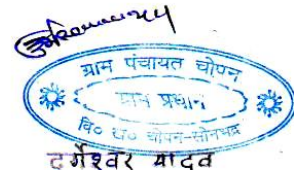 ग्राम पंचायत चोपन
ग्राम प्रधान
वि० ख० चोपन-सोनभद्र
दुर्गेश्वर यादव